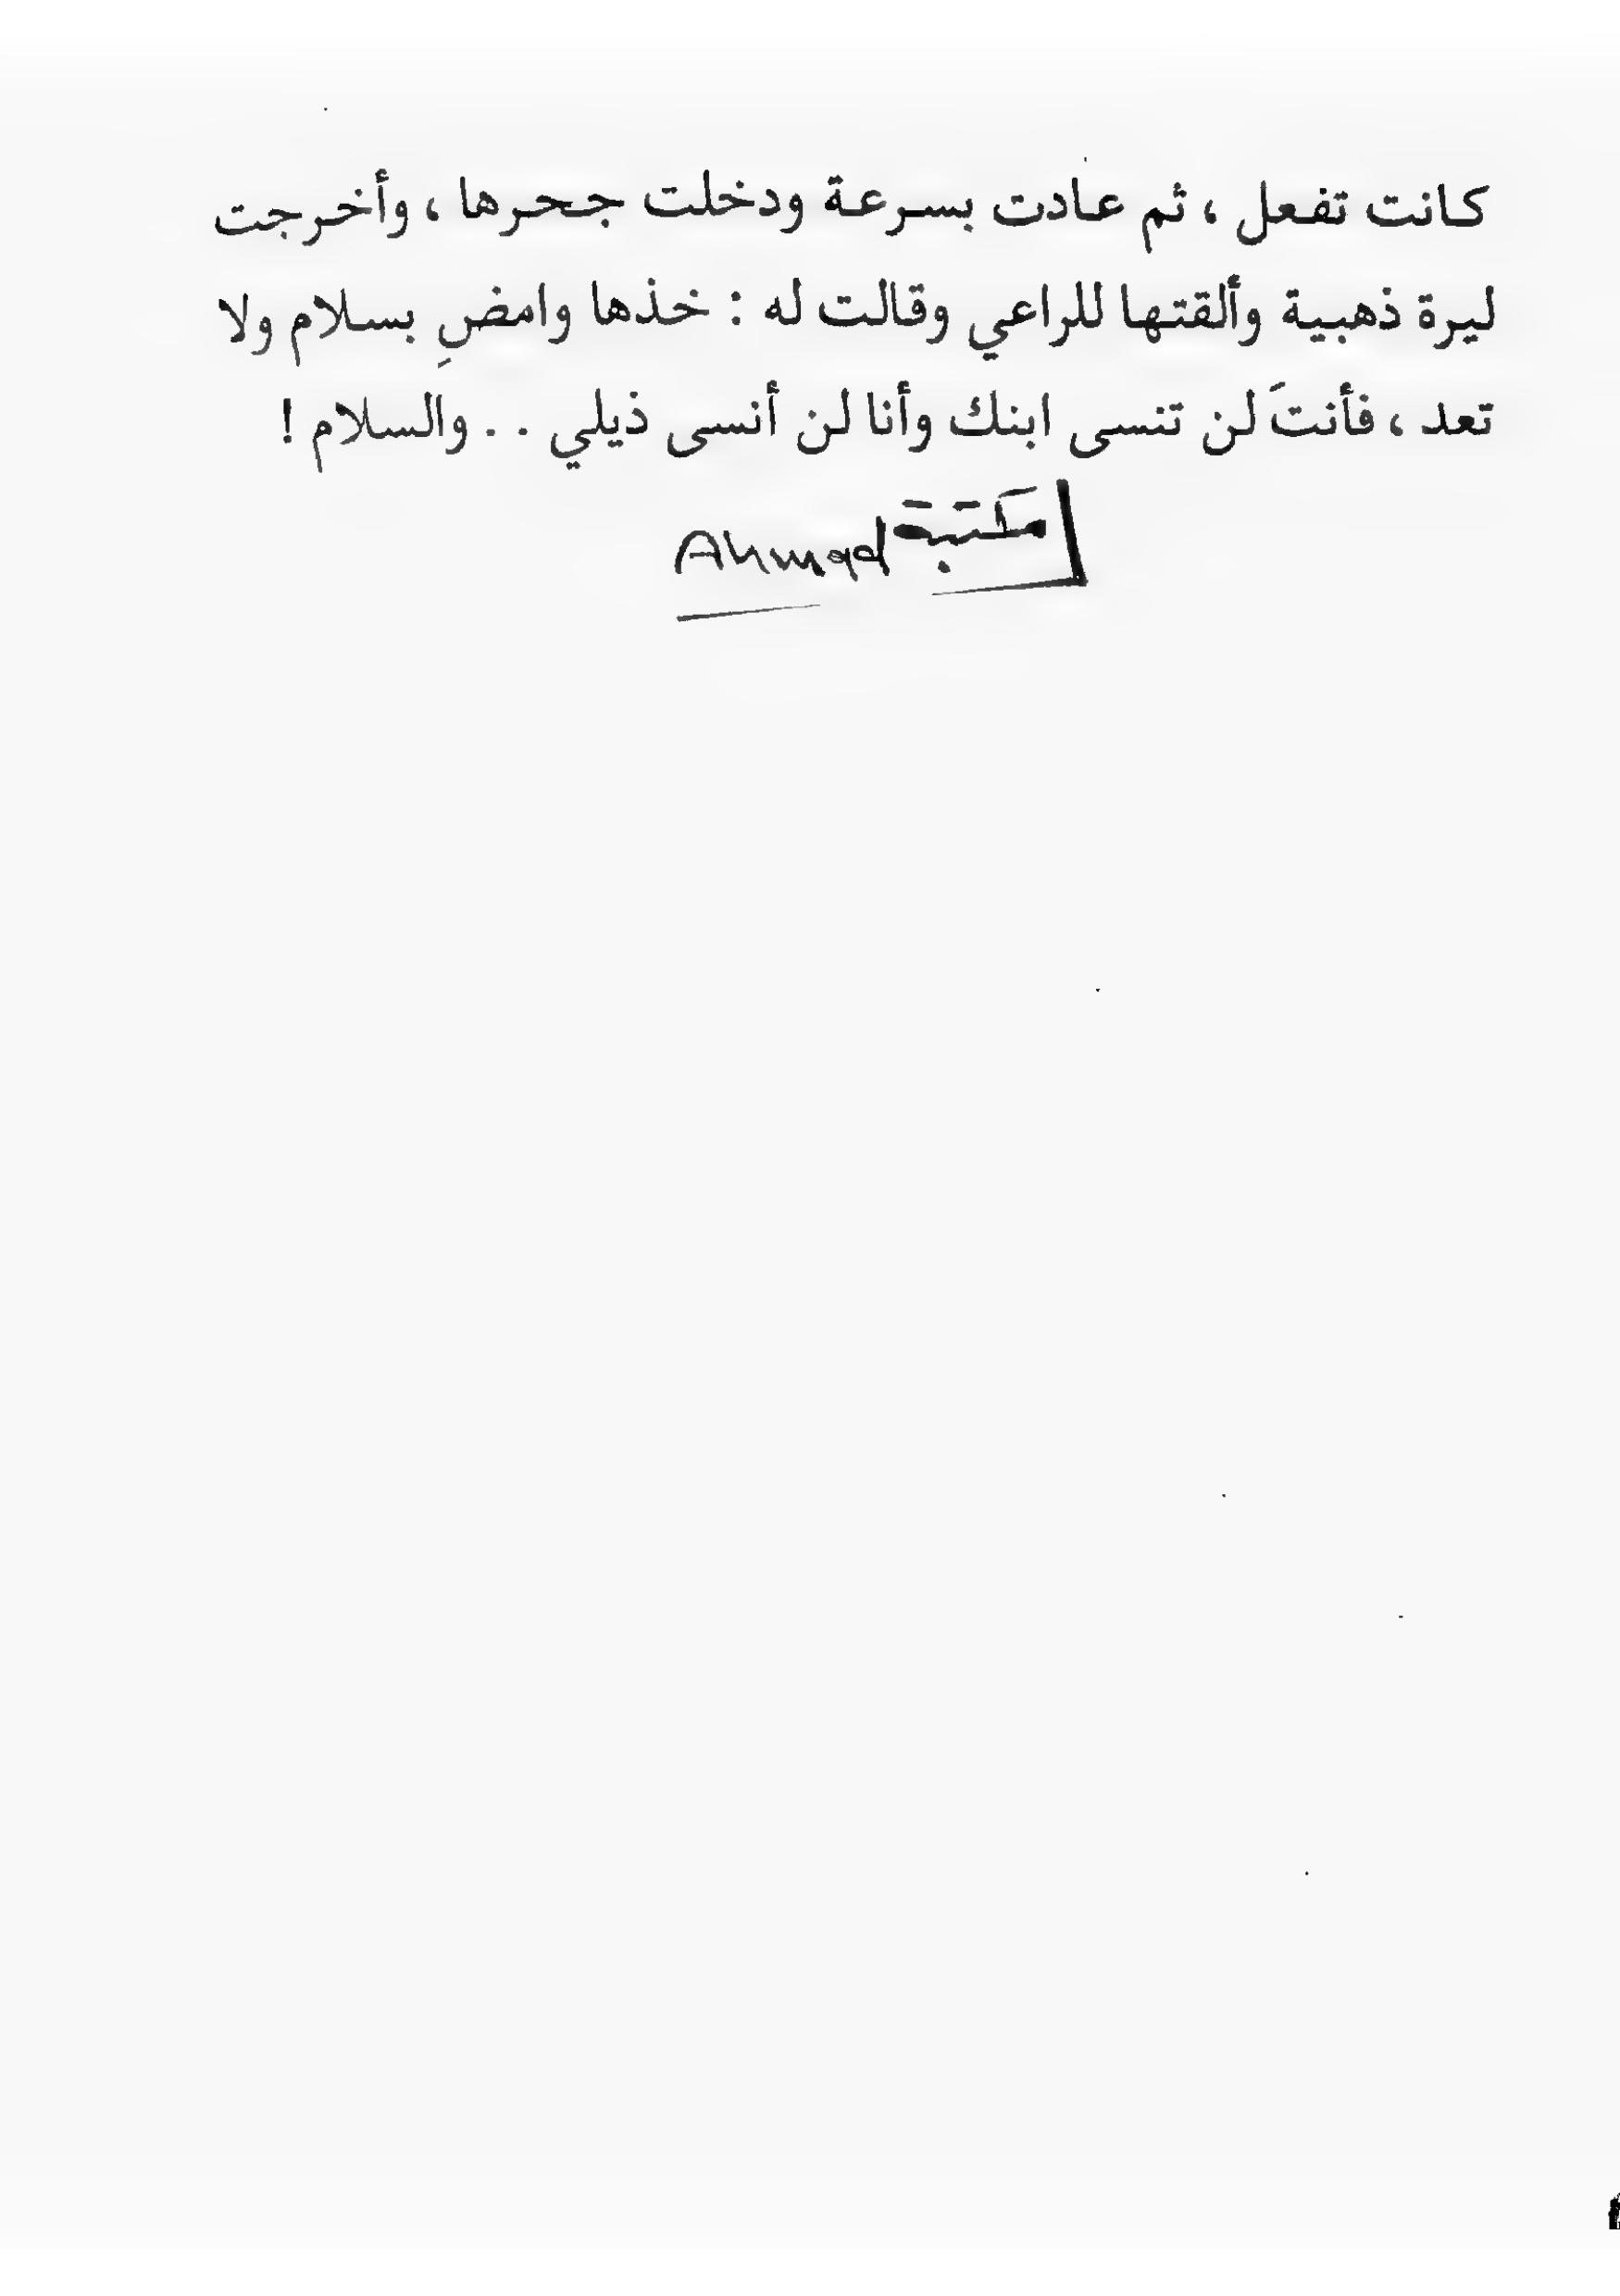 كانت تفعل ، ثم عادت بسرعة ودخلت جحرها ، وأخرجت
ليرة ذهبية وألقتها للراعي وقالت له : خذها وامضِ بسلام ولا
تعد ، فأنتَ لن تنسى ابنك وأنا لن أنسى ذيلي . . والسلام !
مكتبة Ahmad